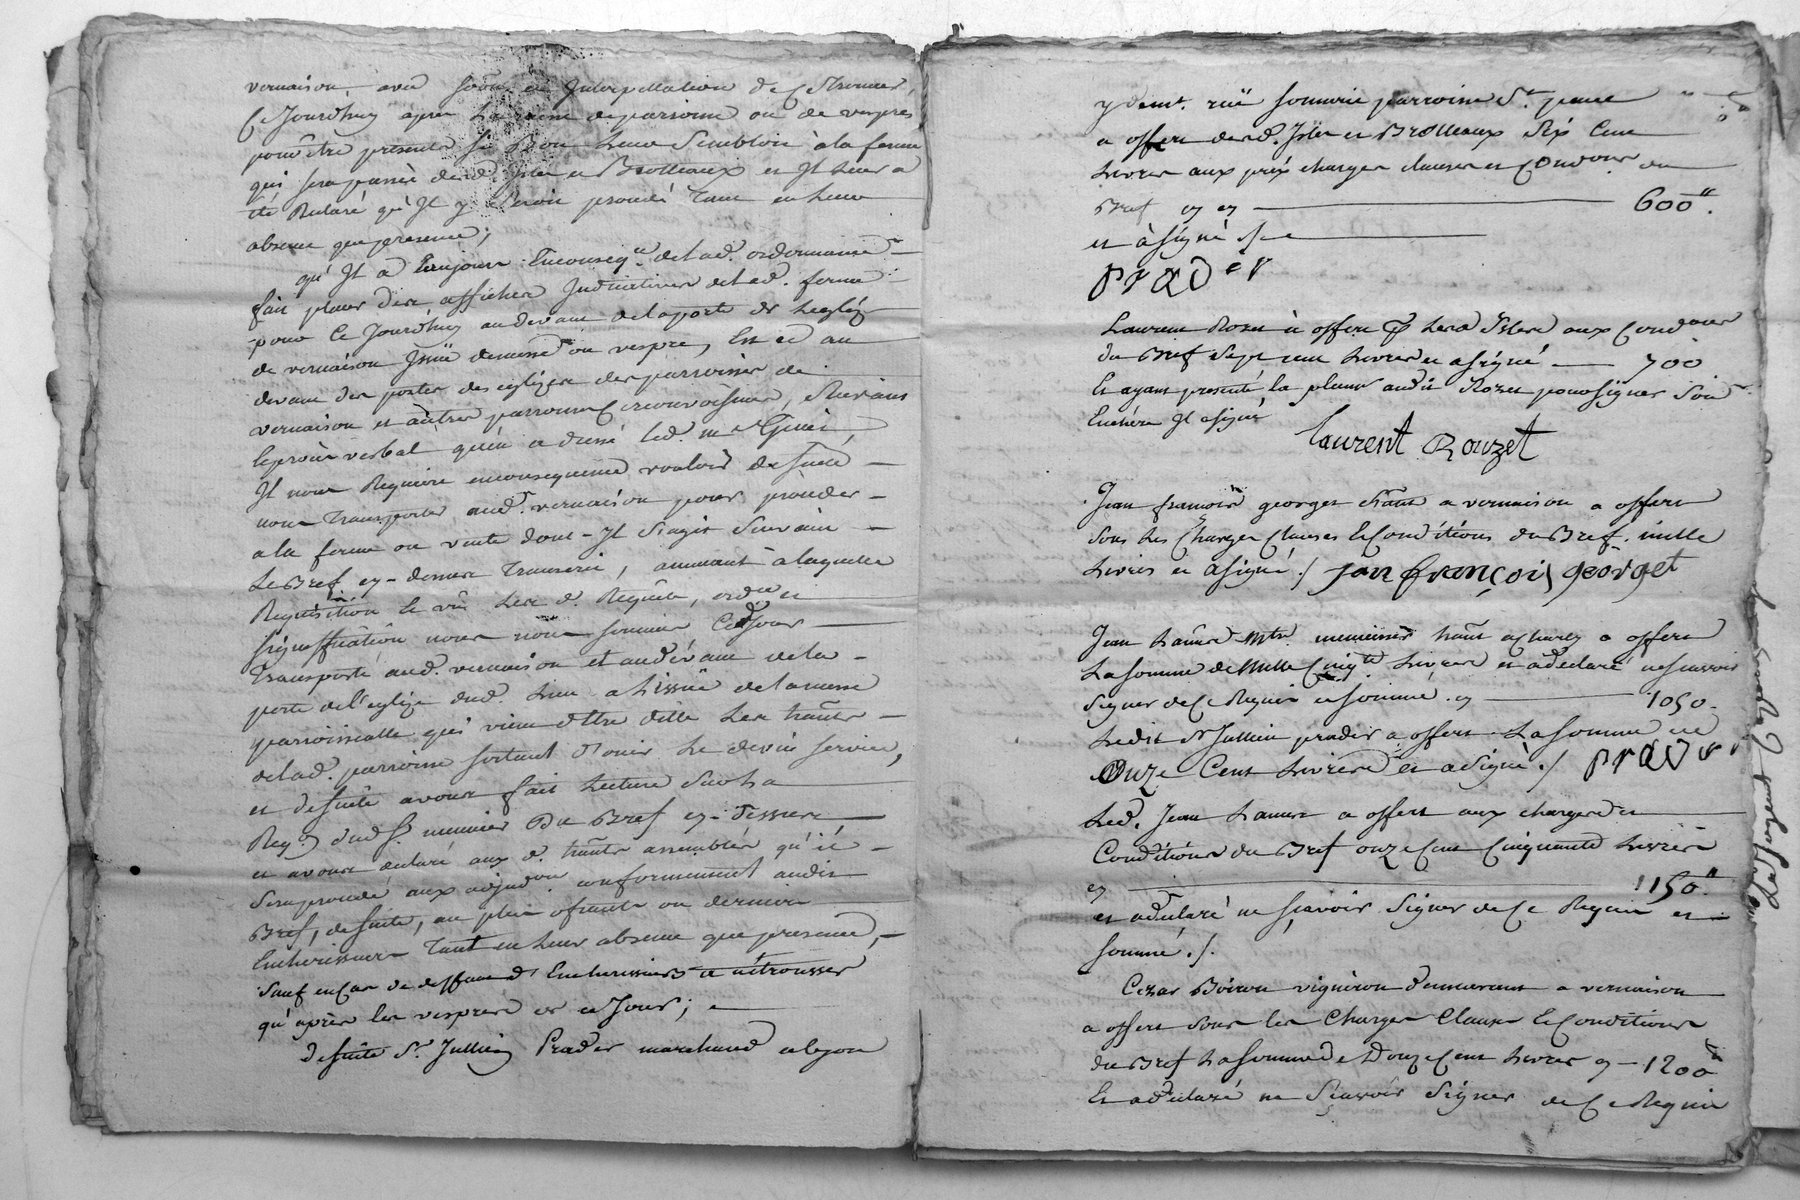 vernaison, avec som͠on et Interpellation de se trouver
Ce Jourdhuy apres La messe de parroisse ou de vespres
pour être presents si Bon Leur Sembloit à la ferme
qui sera passée desd. Isles et Brotteaux et Il Leur a
été declaré qu'Il y seroit procédé Tant en Leur
absence que presence;
qu'Il a Toujours Enconseq.ce de lad. ordonnance
fait placer des affiches Indicatives de lad. ferme
pour Ce Jourdhuy au devant de la porte de Leglize
de vernaison Issüe de messe ou vespre, Et et au
devant des portes des eglizes des parroisses de
vernaison et autres parroisses Circonvoisines, Suivant
le procès verbal qu'en a dressé led. me
Il nous Requiere en consequence vouloir de suite
nous transporter aud. vernaison pour proceder
a la ferme ou vente dont Il S'agit Suivant
Le Bref cy-dessus Transcrit, aumoyant à laquelle
Requisition Le vû Les d. Requête, ord.ce et
signiffication nous nous sommes Cedjour
Transporté aud. vernaison et audevant de la
porte de l'eglize dud. Lieu a Lissüe de la messe
parroissialle qui vient d'Etre ditte Les ha͠nts
de lad. parroisse sortant d'ouir Le divin service,
et de suite avons fait Lecture Sur La
Req.on dud. Sr. meunier Du Bref cy-dessus
et avons declaré aux d. ha͠nts assemblés qu'il
Sera procedé aux adjud.ons conformement audit
Bref, de suite, au plus ofrant et dernier
Encherisseur Tant en Leur absence que presence,
Sauf en Cas de deffaut d'Encherisseurs a retrousser
qu'apres les vespres de ce Jour; et
de suite Sr. Jullien Prader marchand a lyon
y demt. rüe parroisse St.
a offert desd. Isles et Brotteaux Six Cent
Livres aux prix charges clauses et Condons du
Bref cy cy 600ll.
et à signé ./.
Prader
Laurent Rozet à offert desd Isles aux Condons
du Bref Sept cent Livres et a signé 700
Et ayant presenté la plume audit Rozet pour signer Son
Enchere Il a signé
laurent Rouzet
Jean francois georges ha͠nt a vernaison a offert
Sous Les Charges Clauses & Conditions du Bref mille
Livres et a signé ./ jan françois georget
Jean Laure Mtre menuisier ha͠nt a Charly a offert
La somme de Mille Cinqte Livres et a declaré ne scavoir
signer de Ce Requis et sommé cy 1050
Ledit Sr Jullien prader a offert La somme de
Onze Cent Livres et a Signé ./ Prader
Led. Jean Laure a offert aux charges et
Conditions du Bref onze Cent Cinquante Livres
cy 1150ll
et a declaré ne scavoir Signer de Ce Requis et
sommé ./.
Cezar Boiron vigneron demeurant a vernaison
a offert Sous les Charges Clauses & Conditions
du Bref La somme de Douze Cent Livres cy 1200
Et a declaré ne Scavoir Signer de Ce Requis